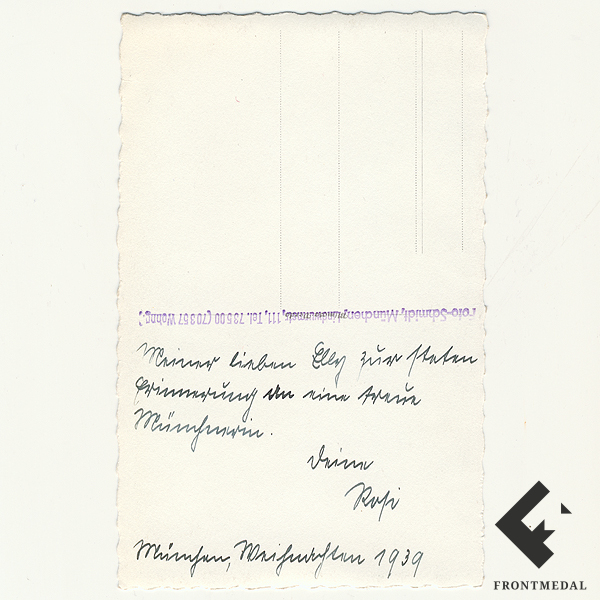 Foto-Schmidl, München, 111, Tel. 73500 (70357 Wohng.)
Meiner lieben Elly zur steten
Erinnerung an eine treue
Münchnerin.
Deine
Rosi
München, Weihnachten 1939
FRONTMEDAL